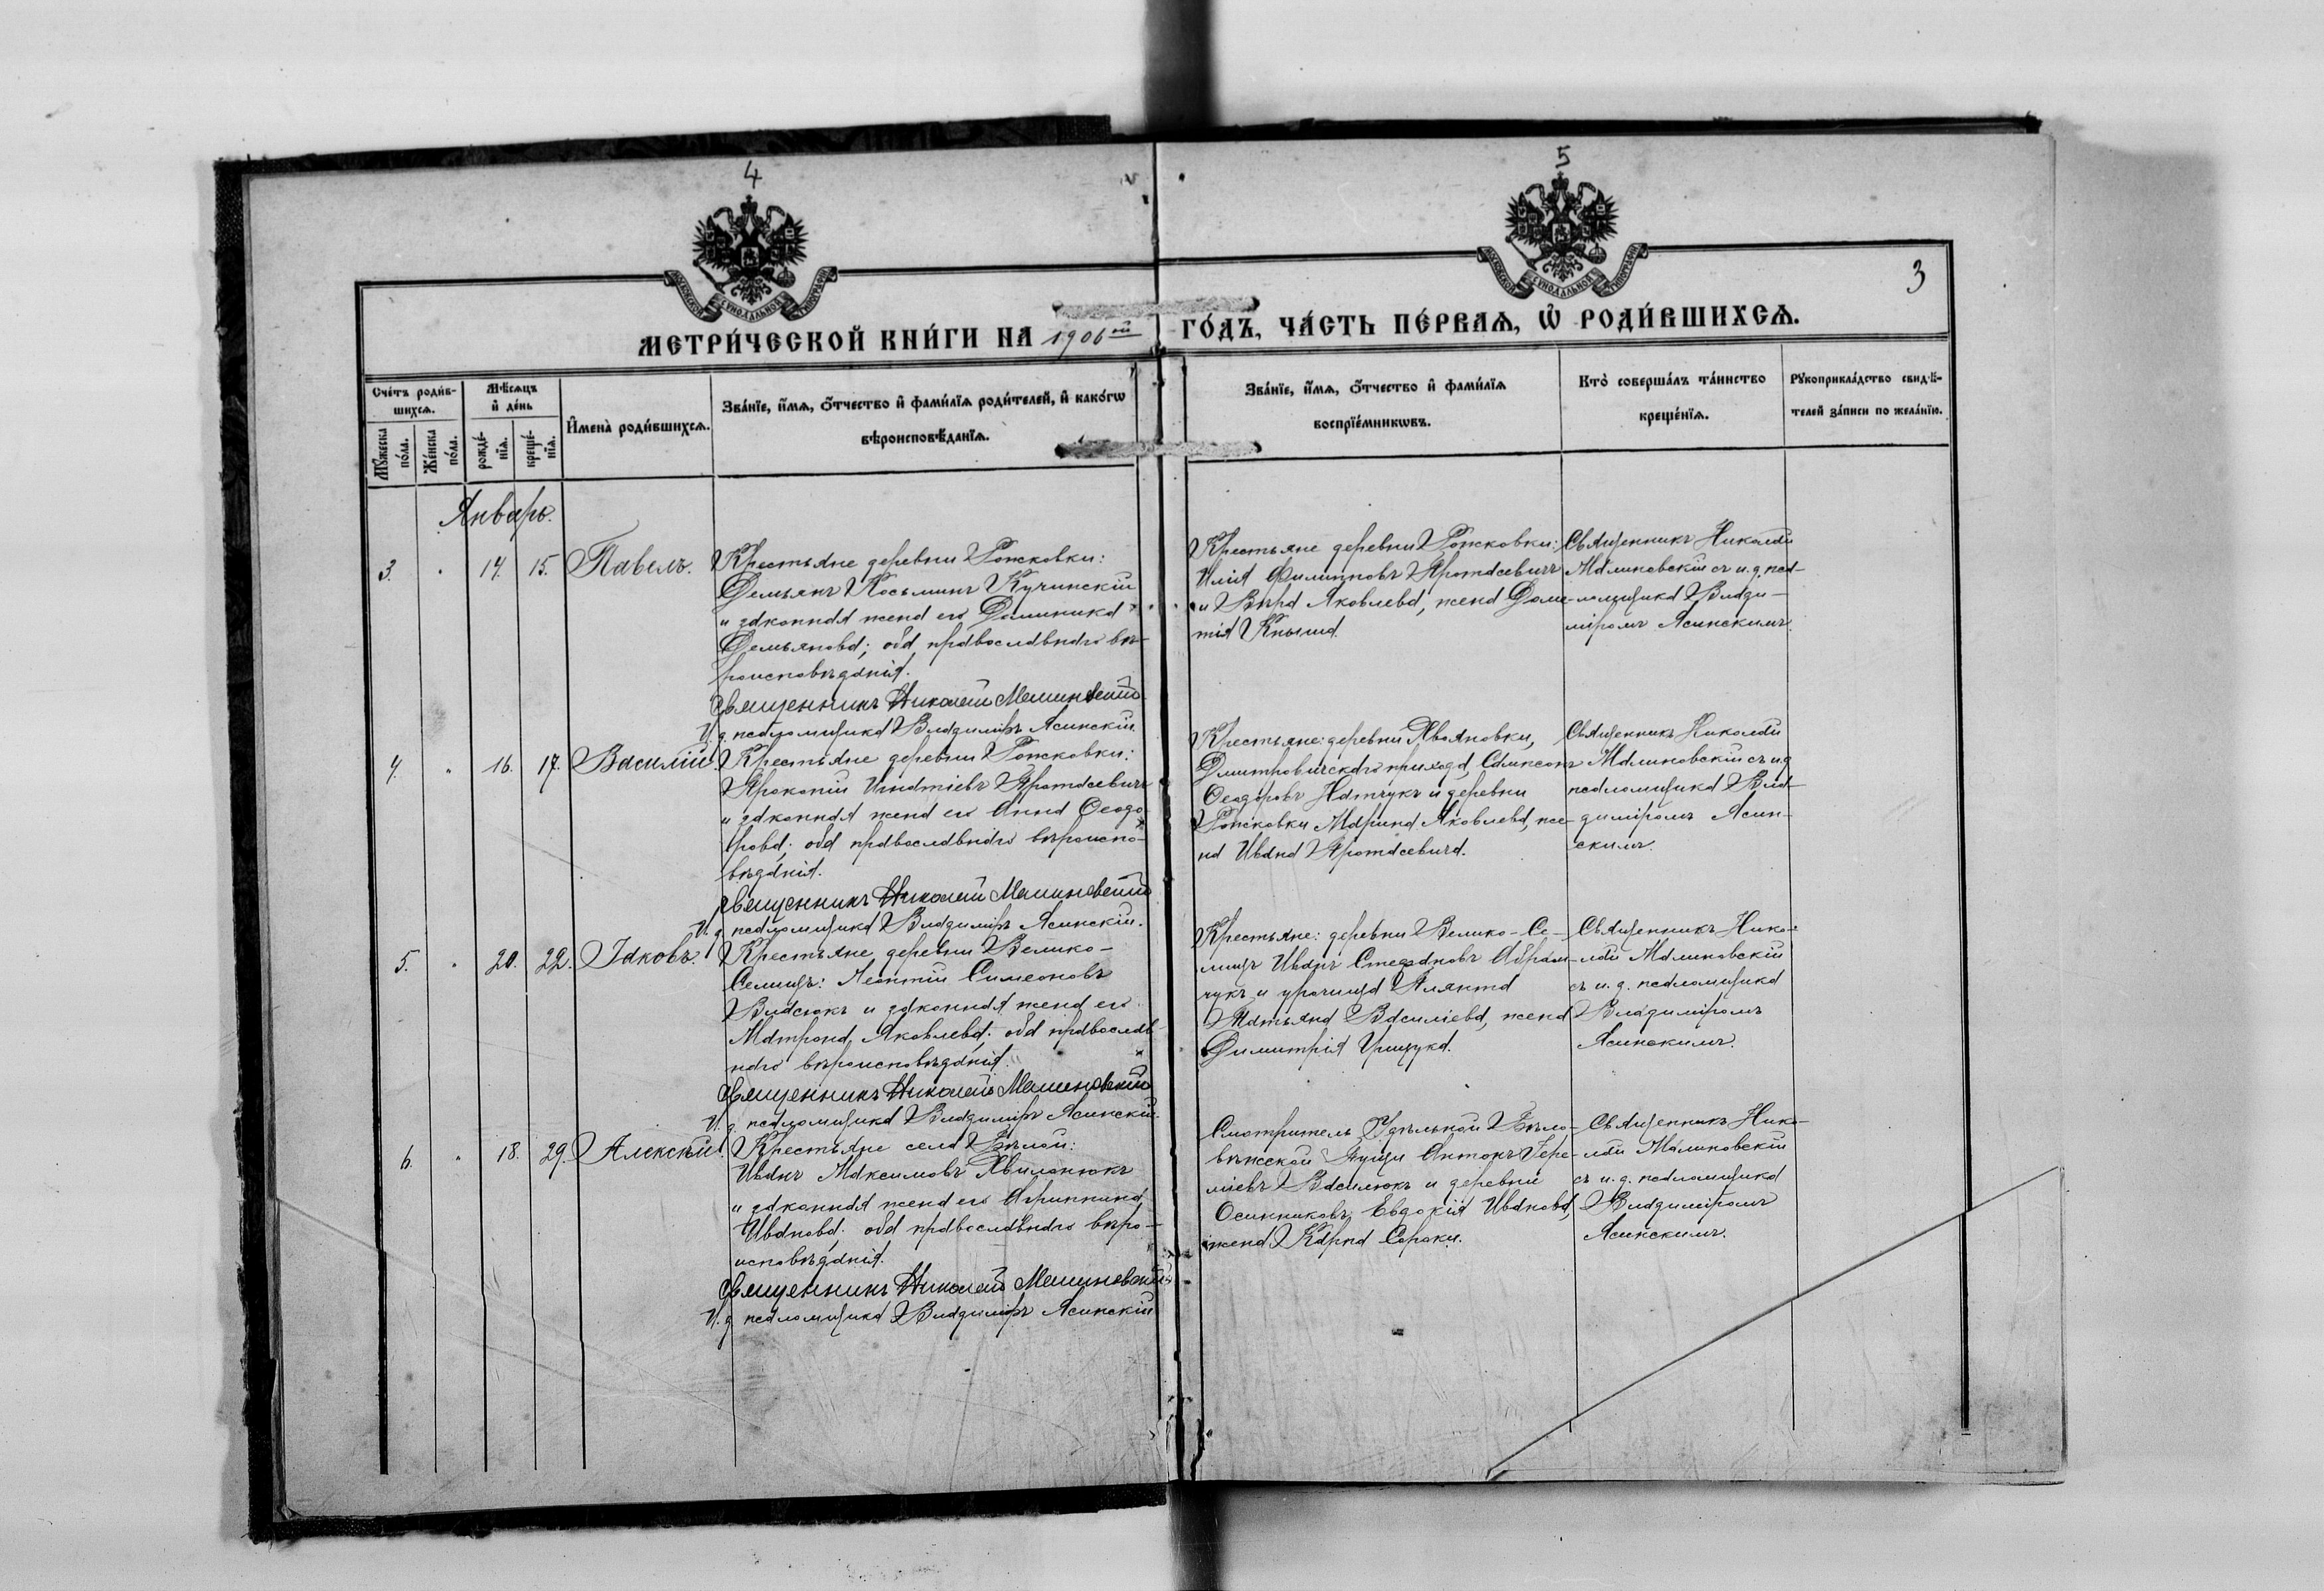 4
5
3
МОСКОВСКОЙ СѴНОДАЛЬНОЙ ТИПОГРАФІИ
МОСКОВСКОЙ СѴНОДАЛЬНОЙ ТИПОГРАФІИ
МЕТРИ́ЧЕСКОЙ КНИ́ГИ НА 1906ий ГО́ДЪ, ЧА́СТЬ ПЕ́РВАѦ, Ѡ҆ РОДИ́ВШИХСѦ.
Сче́тъ роди́в-
шихсѧ.
Мꙋ́жеска
по́ла.
Же́нска
по́ла.
Мѣ́сѧцъ
и҆ де́нь
рожде́-
нїѧ.
креще́-
нїѧ.
И҆мена̀ роди́вшихсѧ.
Зва́нїе, и҆́мѧ, ѻ҆́тчество и҆ фами́лїѧ роди́телей, и҆ како́гѡ
вѣроисповѣ́данїѧ.
Зва́нїе, и҆́мѧ, ѻ҆́тчество и҆ фами́лїѧ
воспрїе́мникѡвъ.
Кто̀ соверша́лъ та́инство
креще́нїѧ.
Рꙋкоприкла́дство свидѣ́-
телей за́писи по жела́нїю.
Январь.
3. " 14. 15. Павелъ.
Крестьяне деревни Рожковки:
Демьянъ Косьминъ Кучинскій
и законная жена его Доминика
Демьянова; оба православнаго вѣ-
роисповѣданія.
Священникъ Николай Малиновскій
И. д. псаломщика Владиміръ Ясинскій.
Крестьяне деревни Рожковки:
Илія Филипповъ Протасевичъ
и Вѣра Яковлева, жена Доме-
тія Кныша.
Священникъ Николай
Малиновскій съ и. д. пса-
ломщика Влади-
міромъ Ясинскимъ.
4. " 16. 17. Василій.
Крестьяне деревни Рожковки:
Прокопій Игнатіевъ Протасевичъ
и законная жена его Анна Ѳеодо-
рова; оба православнаго вѣроиспо-
вѣданія.
Священникъ Николай Малиновскій
И. д. псаломщика Владиміръ Ясинскій.
Крестьяне: деревни
Дмитровичскаго прихода, Самсонъ
Ѳеодоровъ Натчукъ и деревни
Рожковки Марина Яковлева, же-
на Ивана Протасевича.
Священникъ Николай
Малиновскій съ и. д.
псаломщика Вла-
диміромъ Ясин-
скимъ.
5. " 20. 22. Іаковъ.
Крестьяне деревни Велико-
Селищъ: Леонтій Симеоновъ
Власюкъ и законная жена его
Матрона Яковлева; оба православ-
наго вѣроисповѣданія.
Священникъ Николай Малиновскій
И. д. псаломщика Владиміръ Ясинскій.
Крестьяне: деревни Велико-Се-
лищъ Иванъ Стефановъ Абрам-
чукъ и урочища Плянта
Татьяна Василіева, жена
Димитрія Грицука.
Священникъ Нико-
лай Малиновскій
съ и. д. псаломщика
Владиміромъ
Ясинскимъ.
6. " 18. 29. Алексѣй.
Крестьяне села Бѣлой:
Иванъ Максимовъ
и законная жена его Агриппина
Иванова; оба православнаго вѣро-
исповѣданія.
Священникъ Николай Малиновскій
И. д. псаломщика Владиміръ Ясинскій
Смотритель Удѣльной Бѣло-
вѣжской Пущи Антонъ Іере-
міевъ Василюкъ и деревни
Осинниковъ Евдокія Иванова,
жена Карпа Сороки.
Священникъ Нико-
лай Малиновскій
съ и. д. псаломщика
Владиміромъ
Ясинскимъ.